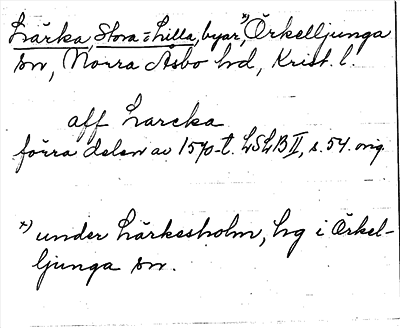 Lärka, Stora = Lilla, byar, x) Örkelljunga
sn, Norra Åsbo hd, Krist. l.
aff Larcka
förra delen av 1570-t. LSLB II, s. 54. orig.
x) under Lärkesholm, hg i Örkel-
ljunga sn.